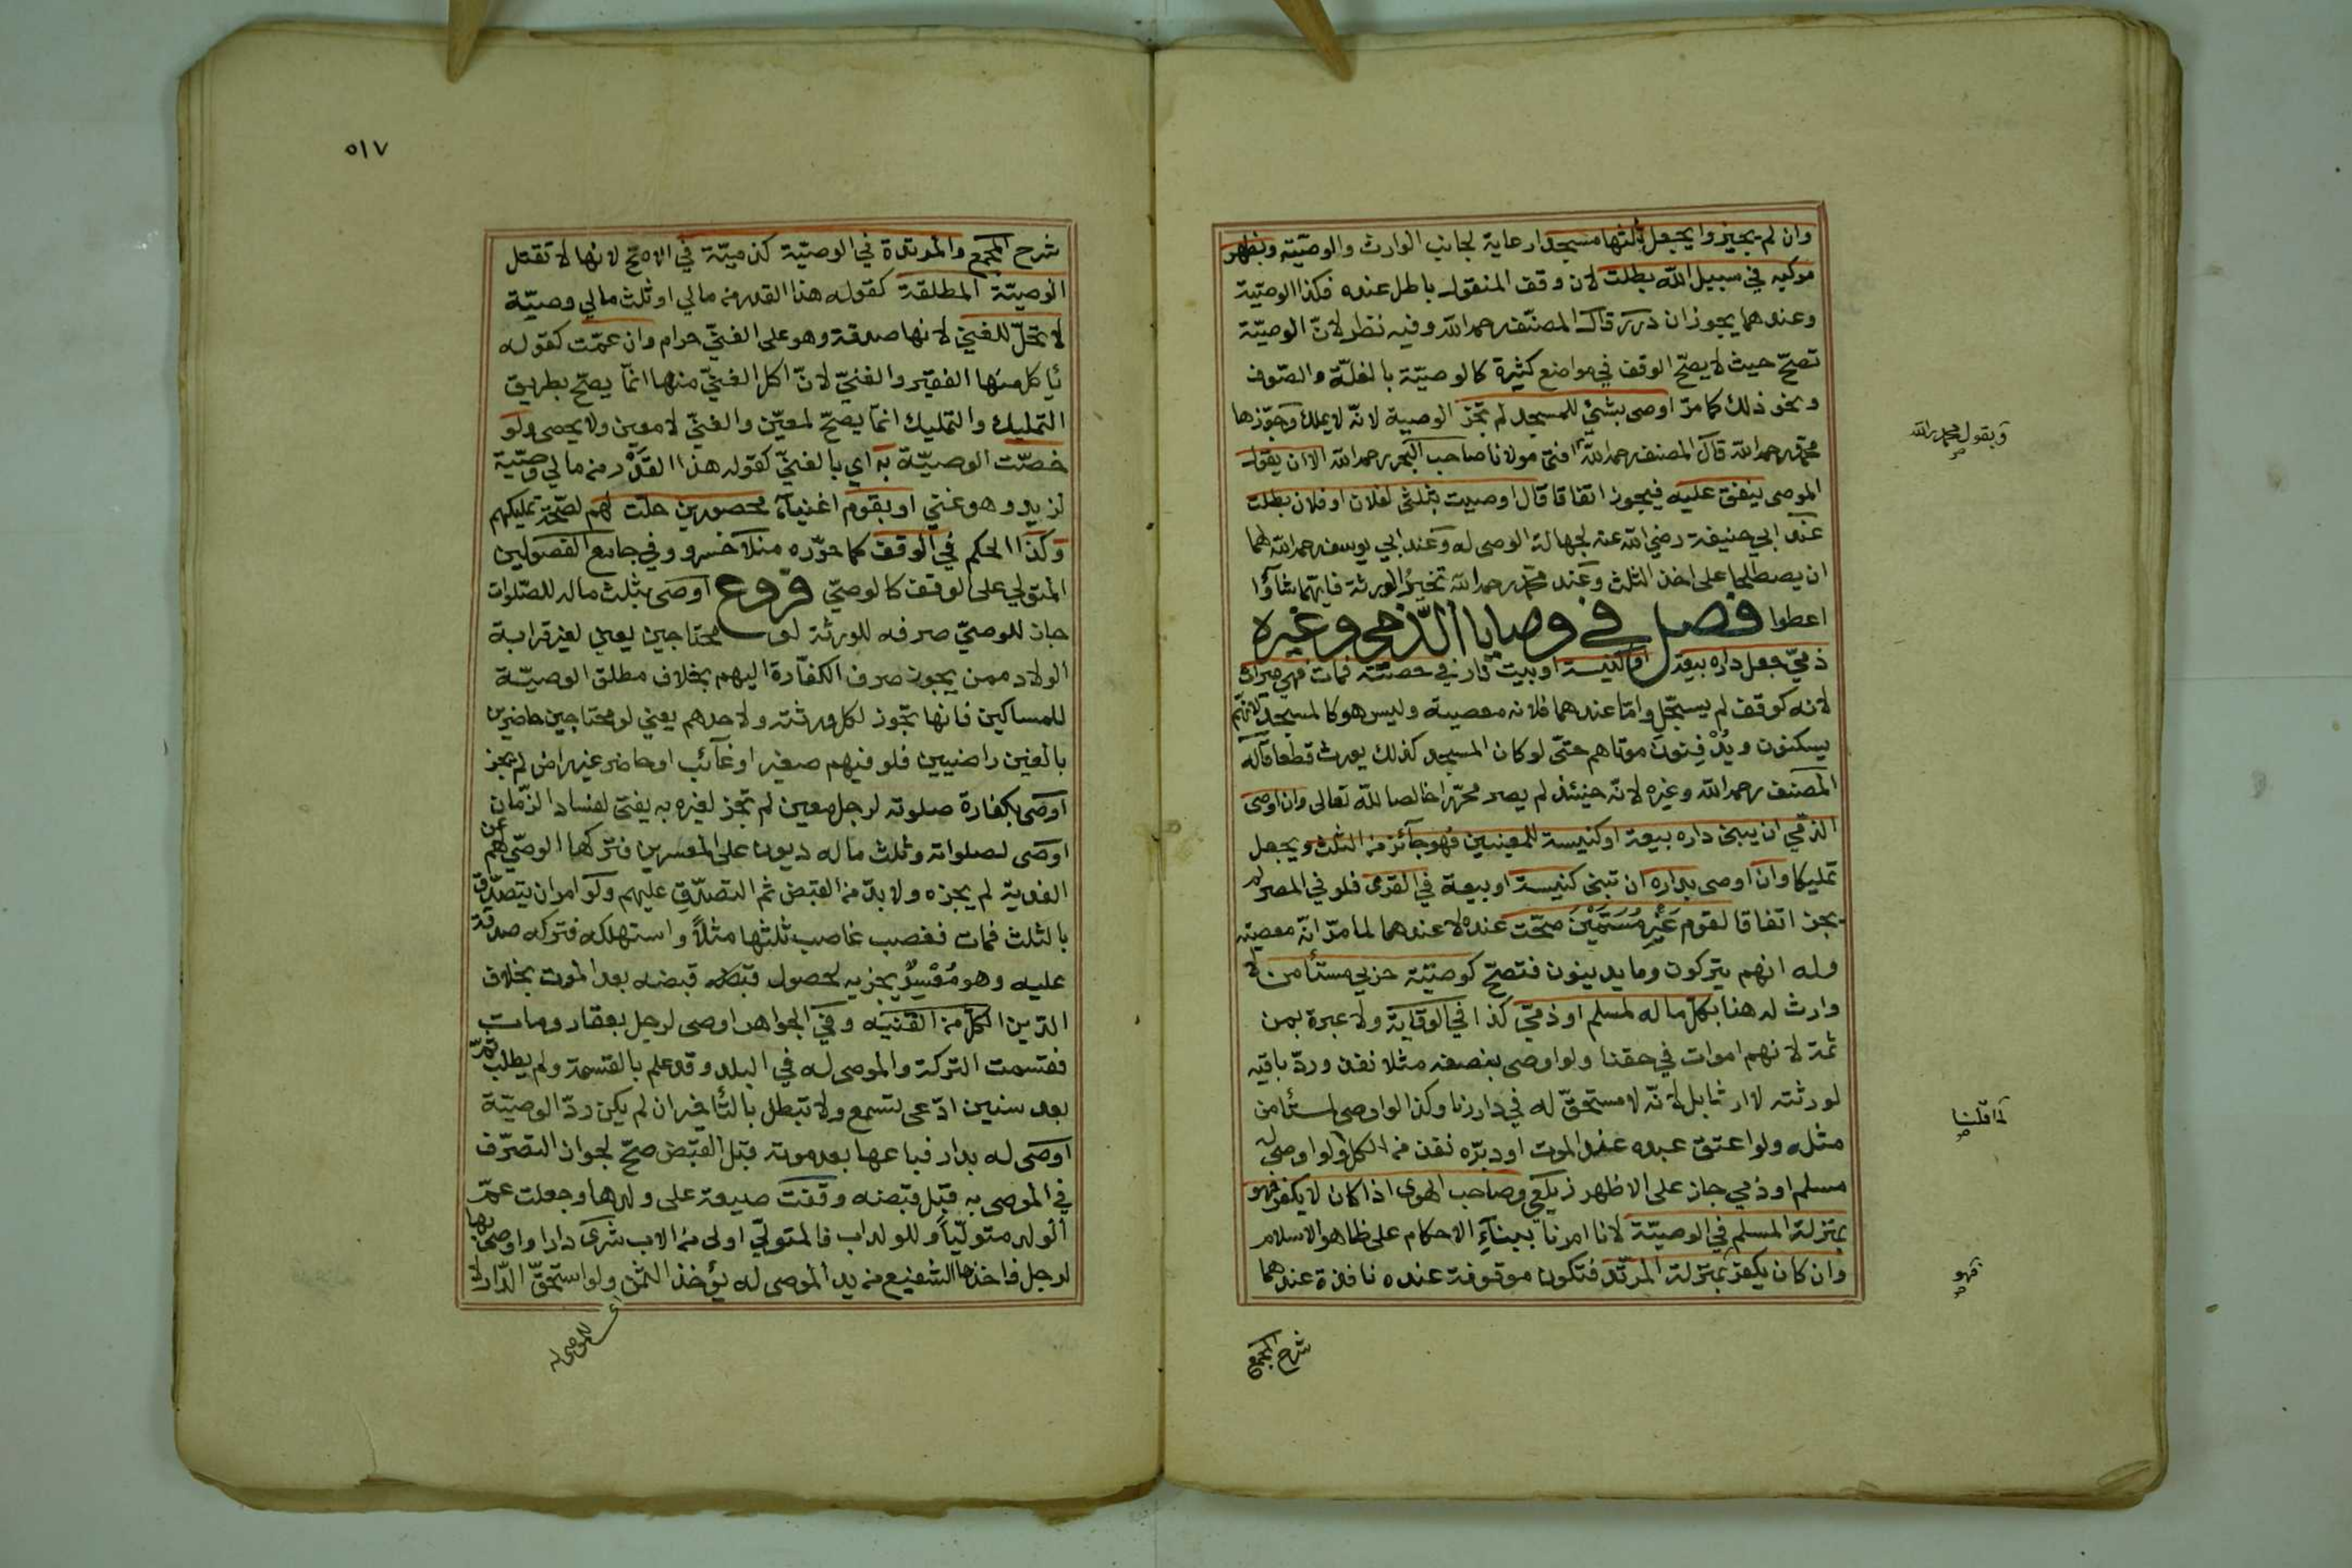 وان لم يجيزوا يجعل ثلثها مسجدا رعاية لجانب الوارث والوصيّة وبظهر
مركبه في سبيل الله بطلت لان وقف المنقول باطل عنده فكذا الوصيّة
وعندهما يجوزان درر قال المصنّف رحمه الله وفيه نظر لانّ الوصيّة
تصحّ حيث لا يصحّ الوقف في مواضع كثيرة كالوصيّة بالغلّة والصّوف
ونحو ذلك كما مرّ اوصى بشئ للمسجد لم تجز الوصية لانّه لا يملك وجوّزها
محمّد رحمه الله قال المصنف رحمه الله افتى مولانا صاحب البحر رحمه الله الا ان يقول
وبقول محمد رالله
الموصى ينفق عليه فيجوز اتفاقا قال اوصيت بثلثى لفلان او فلان بطلت
عند ابي حنيفة رضي الله عنه لجهالة الموصى له وعند ابي يوسف رحمه الله لهما
ان يصطلحا على اخذ الثلث وعند محمّد رحمه الله تخيرُ الورثة فايّهما شاؤا
اعطوا فصل في وصايا الذّمي وغيره
ذميّ جعل داره بيعة او كنيسة او بيت نار في صحّته فمات فهي ميراث
لانه كوقف لم يسجّل وامّا عندهما فلانه معصية وليس هو كالمسجد لانّهم
يسكنون ويُدْفِنون موتاهم حتّى لو كان المسجد كذلك يورث قطعا قاله
المصنف رحمه الله وغيره لانّه حينئذ لم يصر محرّرا خالصا لله تعالى وان اوصى
الذّمي ان يبنى داره بيعة او كنيسة للمعينين فهو جآئز من الثلث ويجعل
تمليكا وان اوصى بداره ان تبنى كنيسة او بيعة في القرى فلو في المصر لم
يجز اتفاقا لقوم غَيْرِ مُسَمّيْنَ صحّت عنده لا عندهما لما مرّ انّه معصية
وله انهم يتركون وما يدينون فتصحّ كوصيّة حربي مستأمن لا
وارث له هنا بكلّ ماله لمسلم او ذميّ كذا في الوقاية ولا عبرة بمن
ثمة لانهم اموات في حقنا ولو اوصى بنصفه مثلا نفذ وردّ باقيه
لورثته لا ارثا بل لانّه لا مستحقّ له في دارنا وكذا لو اوصى لمستأمن
لما قلنا
مثله ولو اعتق عبده عند الموت او دبّره نفذ من الكلّ ولو اوصى له
مسلم او ذمي جاز على الاظهر زيلعي وصاحب الهوى اذا كان لا يكفر فهو
بمنزلة المسلم في الوصيّة لانا امرنا ببنآءِ الاحكام على ظاهر الاسلام
وان كان يكفر بمنزلة المرتّد فتكون موقوفة عنده نافذة عندهما
فهو
شرح المجمع
٥١٧
شرح المجمع والمرتدة في الوصيّة كذميّة في الاصحّ لانها لا تقتل
الوصيّة المطلقة كقوله هذا القدر من مالي او ثلث مالي وصيّة
لا تحلّ للغنيّ لانها صدقة وهو على الغنيّ حرام وان عمّت كقوله
يأكل منها الفقير والغنيّ لانّ اكل الغنيّ منها انّما يصحّ بطريق
التمليك والتمليك انّما يصحّ لمعيّن والغنيّ لا معين ولا يحصى ولو
خصّت الوصيّة به اي بالغنيّ كقوله هذا القَدْر من مالي وصيّة
لزيد وهو غنيّ او بقوم اغنيآء محصورين حلّت لهم لصّحة تمليكهم
وكذا الحكم في الوقف كما حرّره منلا خسرو وفي جامع الفصولين
المتولي على الوقف كالوصيّ فروع اوصى بثلث ماله للصّلوات
جاز للوصيّ صرفه للورثة لو محتاجين يعني لغير قرابة
الولاد ممن يجوز صرف الكفّارة اليهم بخلاف مطلق الوصيّة
للمساكين فانها تجوز لكل ورثته ولاحدهم يعني لو محتاجين حاضرين
بالغين راضيين فلو فيهم صغير او غآئب او حاضر غير راض لم يجز
اوصى بكفارة صلوته لرجل معين لم تجز لغيره به يفتى لفساد الزّمان
اوصى لصلواته وثلث ماله ديون على المعسرين فتركها الوصّي لهم عن
الفدية لم يجزه ولا بدّ من القبض ثم التصدّق عليهم ولو امر ان يتصدّق
بالثلث فمات فغصب غاصب ثلثها مثلاً واستهلكه فتركه صدقة
عليه وهو مُعْسِرٌ يجزيه لحصول قبضه بعد الموت بخلاف
الدّين الكلّ من القنيه وفي الجواهر اوصى لرجل بعقار ومات
فقسمت التركة والموصى له في البلد وقد علم بالقسمة ولم يطلب ثمّ
بعد سنين ادّعى تسمع ولا تبطل بالتأخير ان لم يكن ردّ الوصيّة
اوصى له بدار فباعها بعد موته قبل القبض صحّ لجواز التصرّف
في الموصى به قبل قبضه وقفت ضيعة على ولدها وجعلت عمّ
الولد متوليّاً وللولد اب فالمتولّي اولى من الاب شرى دارا واوصى بها
لرجل فاخذها الشفيع من يد الموصى له يؤخذ الثمن ولو استحقّ الدّار لا
اي للموصى له